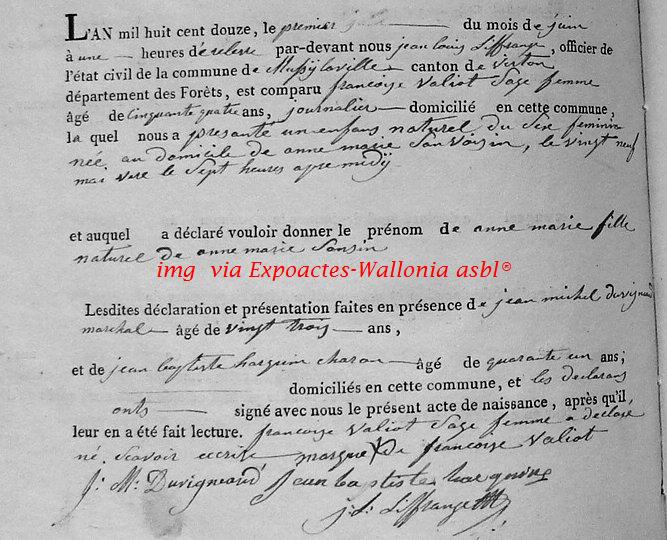 L'AN mil huit cent douze, le premier du mois de juin
à une heures de relevée par-devant nous jean louis Liffrange, officier de
l'état civil de la commune de Mussylaville canton de virton
département des Forêts, est comparu francoise Valiot Sage femme
âgé de Cinquante quatre ans, journalier domicilié en cette commune,
la quel nous a presante un enfans naturel du Sex feminin
née au domicile de anne marie , le vingt neuf
mai vere le Sept heures apremidÿ
et auquel a déclaré vouloir donner le prénom de anne marie fille
naturel de anne marie
img via Expoactes-Wallonia asbl®
Lesdites déclaration et présentation faites en présence de jean michel duvigneaud
marchal âgé de vingt trois ans,
et de jean baptiste harquin charon âgé de quarante un ans;
domiciliés en cette commune, et les declarans
onts signé avec nous le présent acte de naissance, après qu'il,
leur en a été fait lecture. francoise Valiot Sage femme a declare
né Scavoir ecrire marque X de francoise Valiot
J: M: Duvigneaud Jean baptiste harquin
j: l: Liffrange